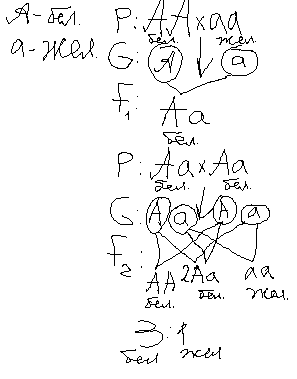 А - бел.
а - жел.
P: AA x aa
бел. жел.
G: A a
F1: Aa
бел.
P: Aa x Aa
бел. бел.
G: A a A a
F2: AA 2Aa aa
бел. бел. жел.
3:1
бел жел